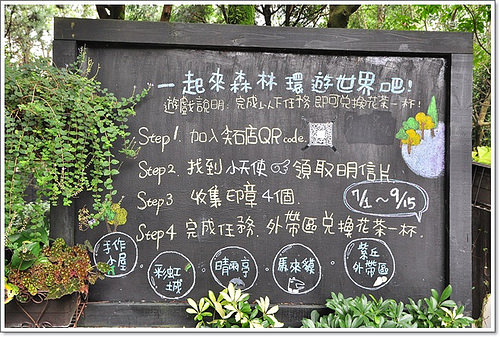 一起來森林環遊世界吧!
遊戲說明:完成以下任務即可兌換花茶一杯!
Step1. 加入名店QR code.
Step2. 找到小天使 領取明信片
Step3 收集印章4個.
7/1~9/15
Step4 完成任務.外帶區兌換花茶一杯.
手作小屋
彩虹城
晴雨亭
馬來貘
紫丘外帶區